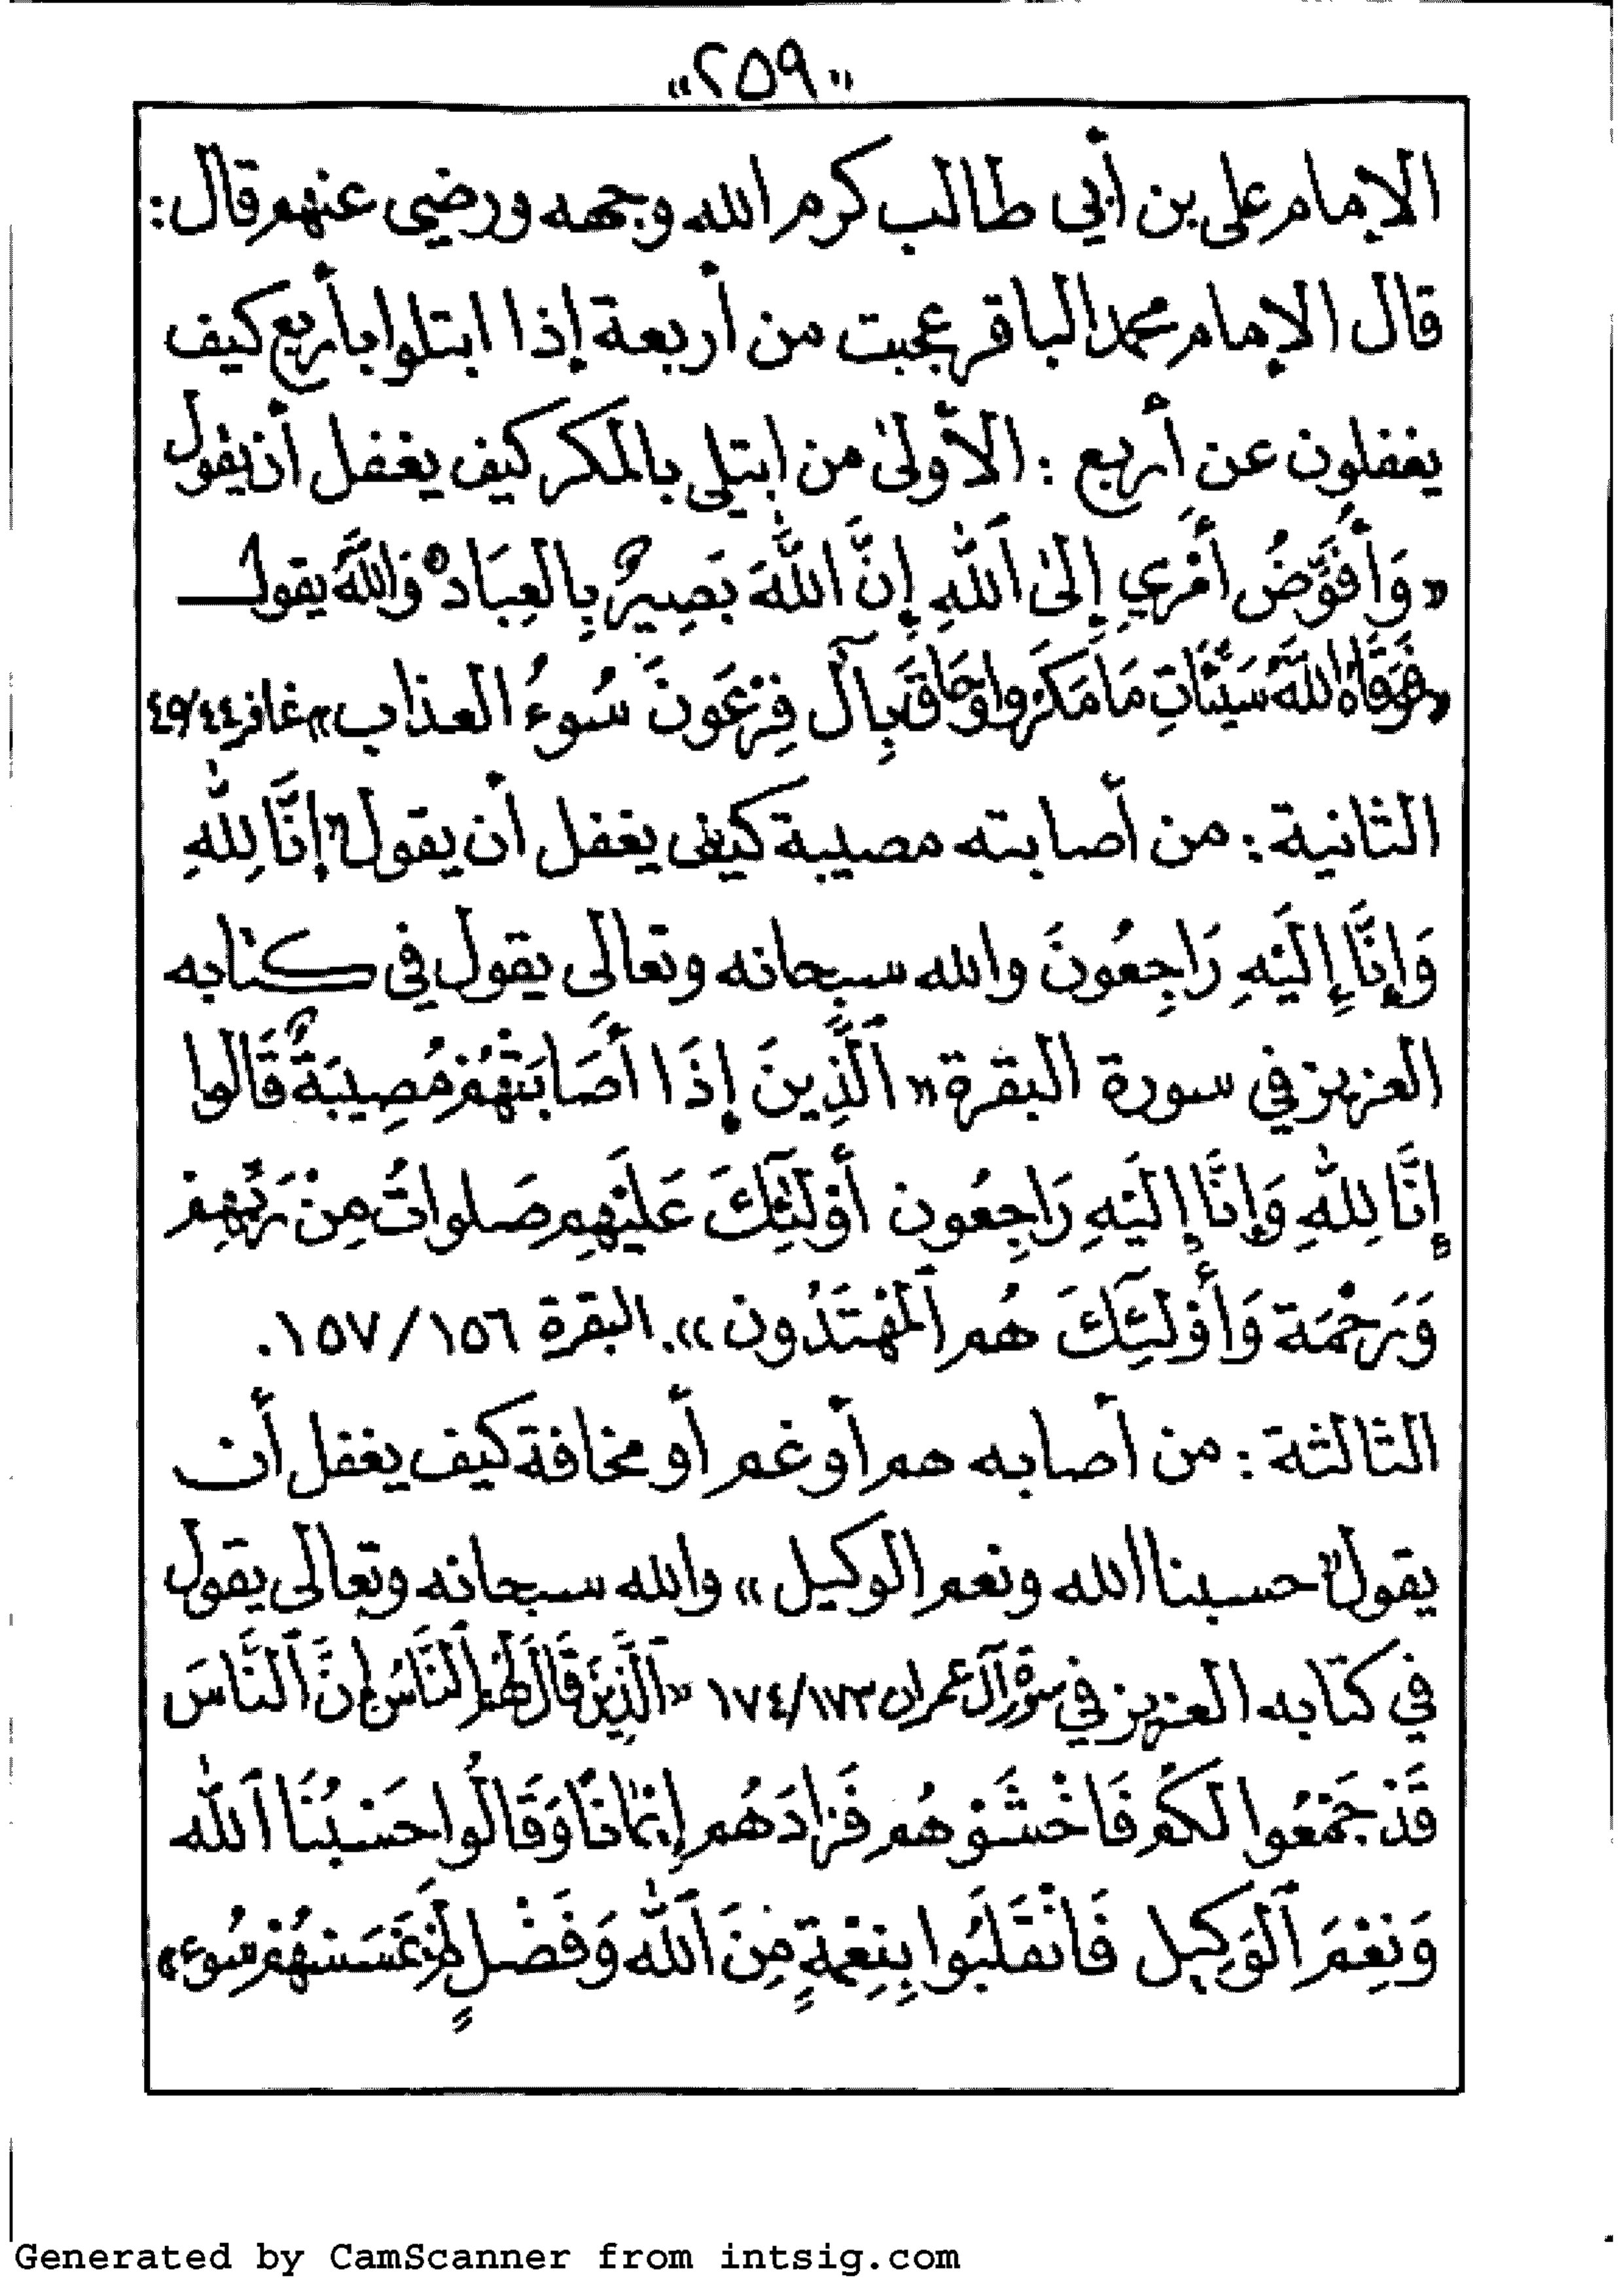 «٢٥٩»
الإمام على بن أبي طالب كرم الله وجهه ورضي عنهم قال:
قال الإمام محمد الباقر عجبت من أربعة إذا ابتلوا بأربع كيف
يغفلون عن أربع : الأولىٰ من ابتلي بالمكر كيف يغفل أن يقول
«وَأُفَوِّضُ أَمْرِي إِلىٰ ٱللّٰهِ إِنَّ اللّٰهَ بَصِيرٌ بِالعِبَاد» وَاللَّهُ يقول
«فَوَقَاهُ اللَّهُ سَيِّئَاتِ مَا مَكَرُوا وَحَاقَ بِآلِ فِرْعَوْنَ سُوءُ العذاب» غافر ٤٤/٤٥
الثانية: من أصابته مصيبة كيف يغفل أن يقول «إِنَّا لِلّٰهِ
وَإِنَّا إِلَيْهِ رَاجِعُونَ والله سبحانه وتعالى يقول في كتابه
العزيز في سورة البقرة «ٱلَّذِينَ إِذَا أَصَابَتْهُمْ مُصِيبَةٌ قَالوا
إِنَّا لِلّٰهِ وَإِنَّا إِلَيْهِ رَاجِعُون أُوْلَٰئِكَ عَلَيْهِم صَلواتٌ مِنْ رَبِّهِمْ
وَرَحْمَة وَأُوْلَٰئِكَ هُم ٱلمُهْتَدُون». البقرة ١٥٦/١٥٧.
الثالثة: من أصابه هم أو غم أو مخافة كيف يغفل أن
يقول «حسبنا الله ونعم الوكيل» والله سبحانه وتعالى يقول
في كتابه العزيز في سورة آل عمران ١٧٣/١٧٤ «ٱلَّذِينَ قَالَ لَهُمُ ٱلنَّاسُ إِنَّ ٱلنَّاسَ
قَدْ جَمَعُوا لَكُمْ فَاخْشَوْهُم فَزَادَهُم إِيمَانًا وَقَالُوا حَسْبُنَا ٱللّٰه
وَنِعْمَ ٱلوَكِيل فَانْقَلَبُوا بِنِعْمَةٍ مِنَ ٱللّٰه وَفَضْلٍ لَمْ يَمْسَسْهُمْ سُوء»
Generated by CamScanner from intsig.com